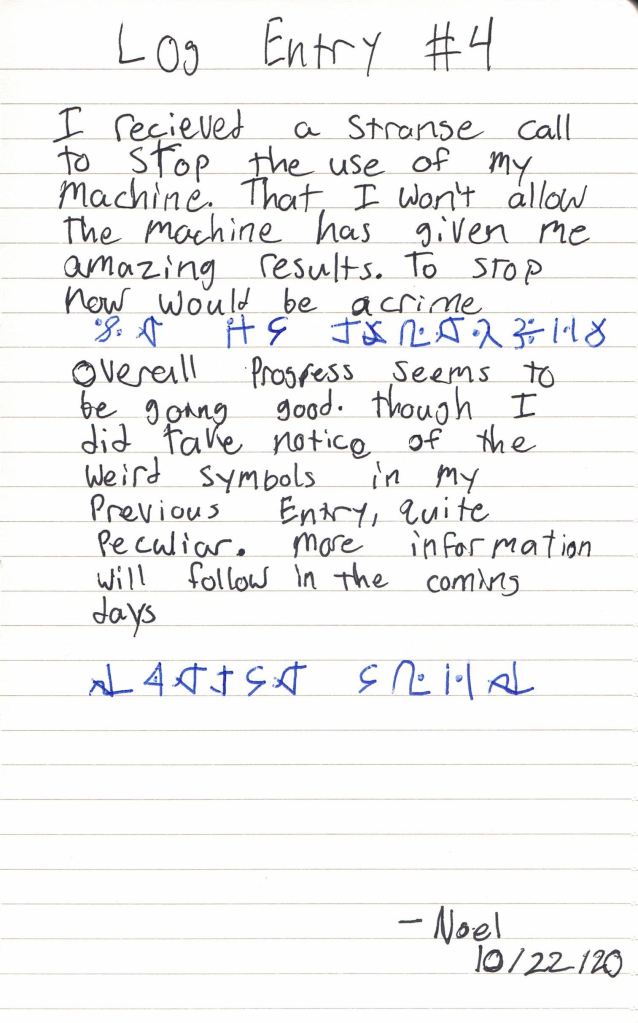 Log Entry #4
I recieved a strange call
to stop the use of my
machine. That I won't allow
the machine has given me
amazing results. To stop
now would be a crime
Overall Progress seems to
be going good. though I
did take notice of the
weird symbols in my
Previous Entry, quite
Peculiar. More information
will follow in the coming
days
- Noel
10/22/20